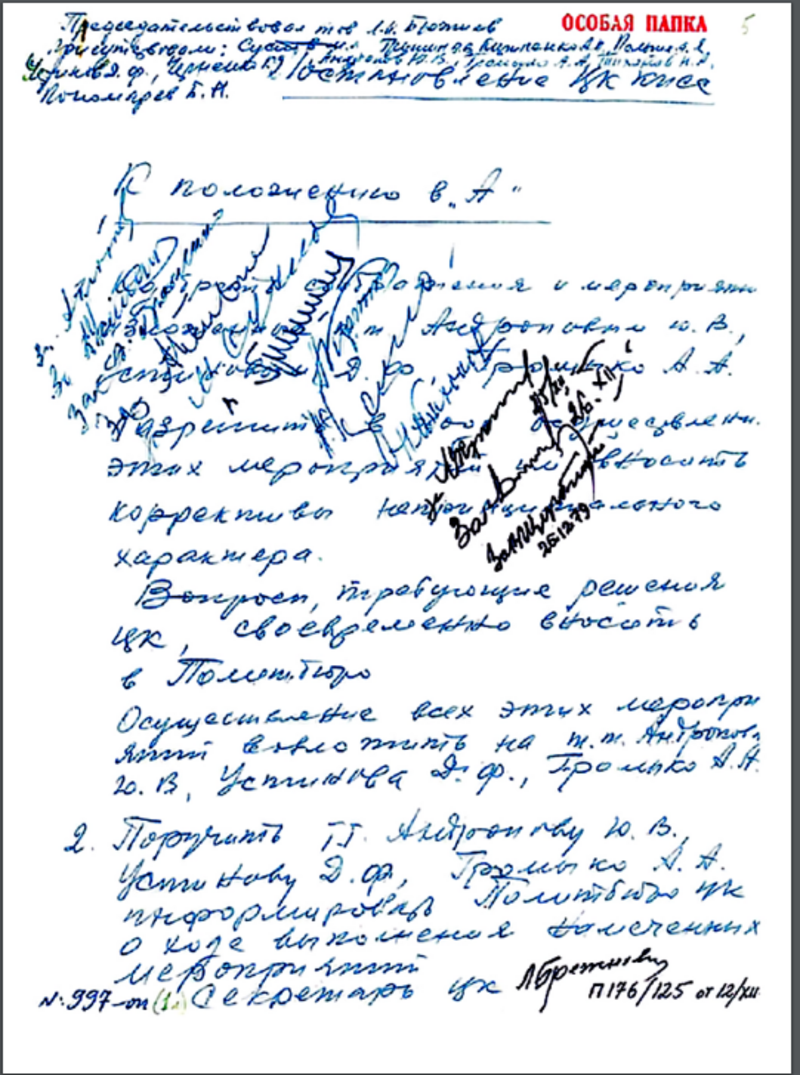 Председательствовал тов. Л.И. Брежнев
ОСОБАЯ ПАПКА
5
Присутствовали: Суслов М.А., Гришин В.В., Кириленко А.П., Пельше А.Я.,
Устинов Д.Ф., Черненко К.У., Андропов Ю.В., Громыко А.А., Тихонов Н.А.,
Пономарев Б.Н.
Постановление ЦК КПСС
К положению в „А“
соображения и мероприятия
изложенные т.т. Андроповым Ю.В.,
Устиновым Д.Ф., Громыко А.А.
Разрешить в ходе осуществления
этих мероприятий им вносить
коррективы непринципиального
характера.
Вопросы, требующие решения
ЦК, своевременно вносить
в Политбюро
Осуществление всех этих меропри
ятий возложить на т.т. Андропова
Ю.В, Устинова Д.Ф., Громыко А.А.
25/XII
26.XII
За
25.12.79
2. Поручить т.т. Андропову Ю.В.,
Устинову Д.Ф, Громыко А.А.
информировать Политбюро ЦК
о ходе выполнения намеченных
мероприятий
Секретарь ЦК Л Брежнев
№ 997-оп (1л)
П176/125 от 12/XII